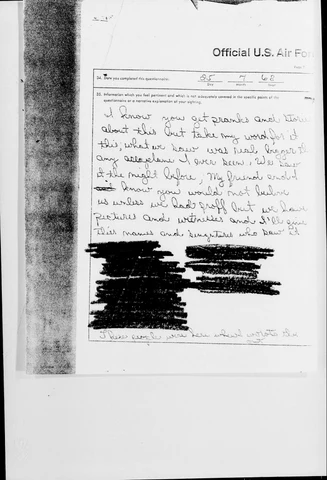 Official U.S. Air For
34. Date you completed this questionnaire: 25 7 62
Day Month Year
35. Information which you feel pertinent and which is not adequately covered in the specific points of the
questionnaire or a narrative explanation of your sighting.
I know you get pranks and storie
about this but take my word for it
this, what we saw was real bigger th
any aeroplane I ever seen. We saw
it the night before, My friend and I
know you would not belive
us unless we had proff but we have
pictures and witnesses and I'll give
thies names and singitures who saw it
These people were here when I wrote the